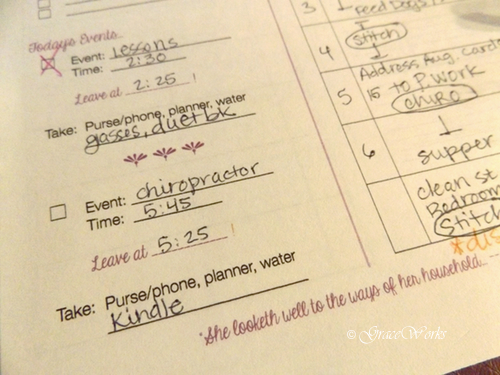 Today's Events...
Event: Lessons
Time: 2:30
Leave at 2:25 !
Take: Purse/phone, planner, water
gasses, duet bk
Event: chiropractor
Time: 5:45
Leave at 5:25 !
Take: Purse/phone, planner, water
Kindle
3 Feed Dogs,
4 Stitch
5 Address Aug. cards
15 to P. work
chiro
6 supper
clean st
Bedroom
Stitch
*dis
She looketh well to the ways of her household...
© GraceWorks